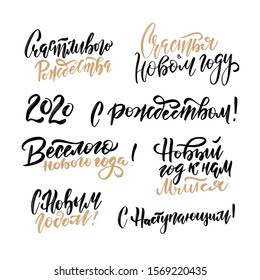 Счастливого
Рождества
Счастья
в
Новом году
2020
С Рождеством!
Веселого
Нового года!
Новый
год к нам
Мчится
С Новым
годом!
С Наступающим!
shutterstock.com · 1569220435